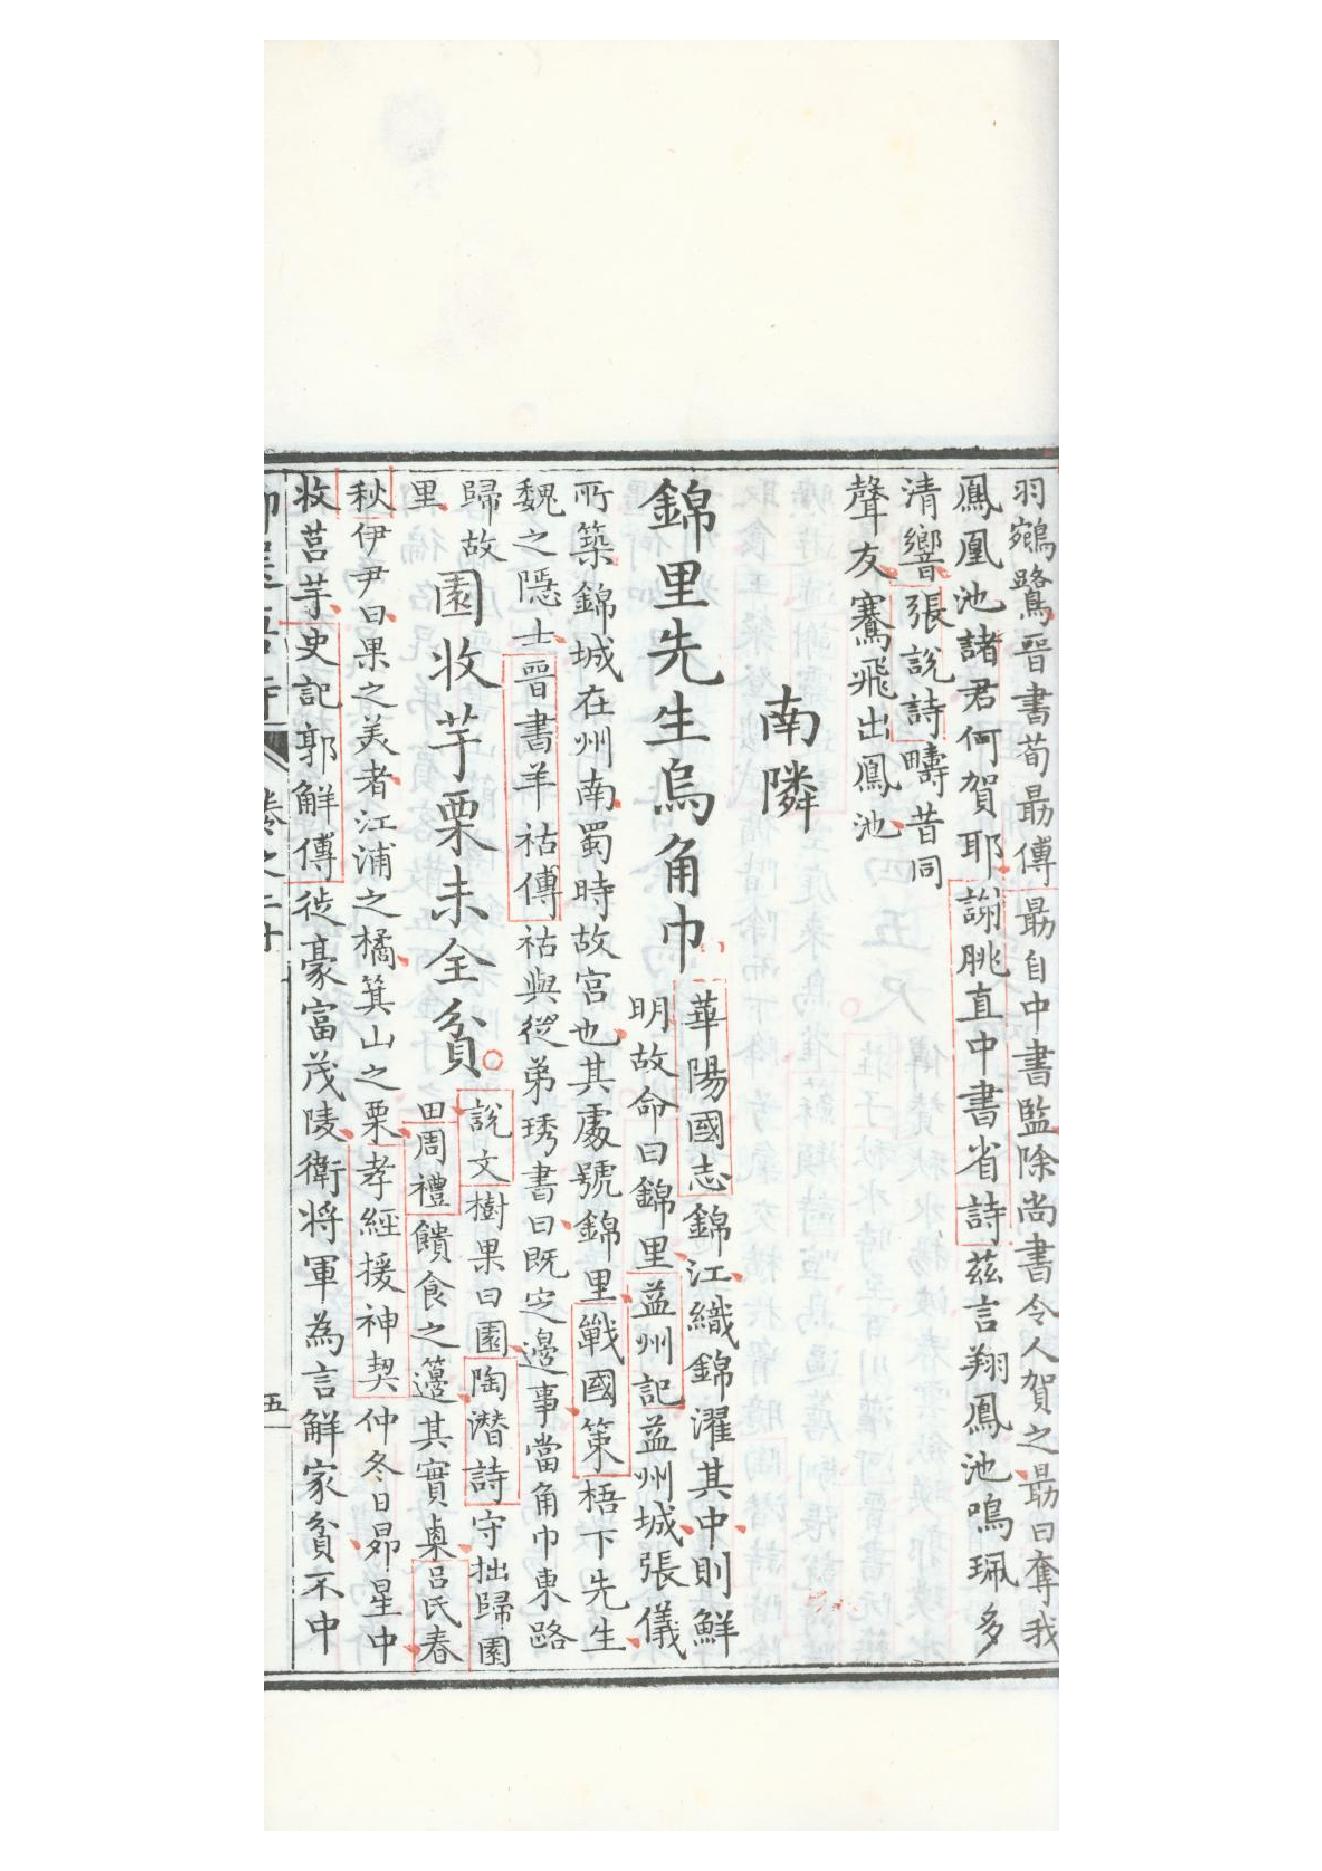 羽鵷鷺晉書荀勗傳勗自中書監除尚書令人賀之勗曰奪我
鳳凰池諸君何賀耶謝朓直中書省詩茲言翔鳳池鳴珮多
清響張說詩疇昔同
聲友騫飛出鳳池
南隣
錦里先生烏角巾
華陽國志錦江織錦濯其中則鮮
明故命曰錦里益州記益州城張儀
所築錦城在州南蜀時故宮也其處號錦里戰國策梧下先生
魏之隱士晉書羊祜傳祜與從弟琇書曰既定邊事當角巾東路
歸故
里
園收芋栗未全貧
說文樹果曰園陶潛詩守拙歸園
田周禮饋食之籩其實㮚呂氏春
秋伊尹曰果之美者江浦之橘箕山之栗孝經援神契仲冬日昴星中
收莒芋史記郭解傳徙豪富茂陵衛將軍為言解家貧不中
卷之二十
五